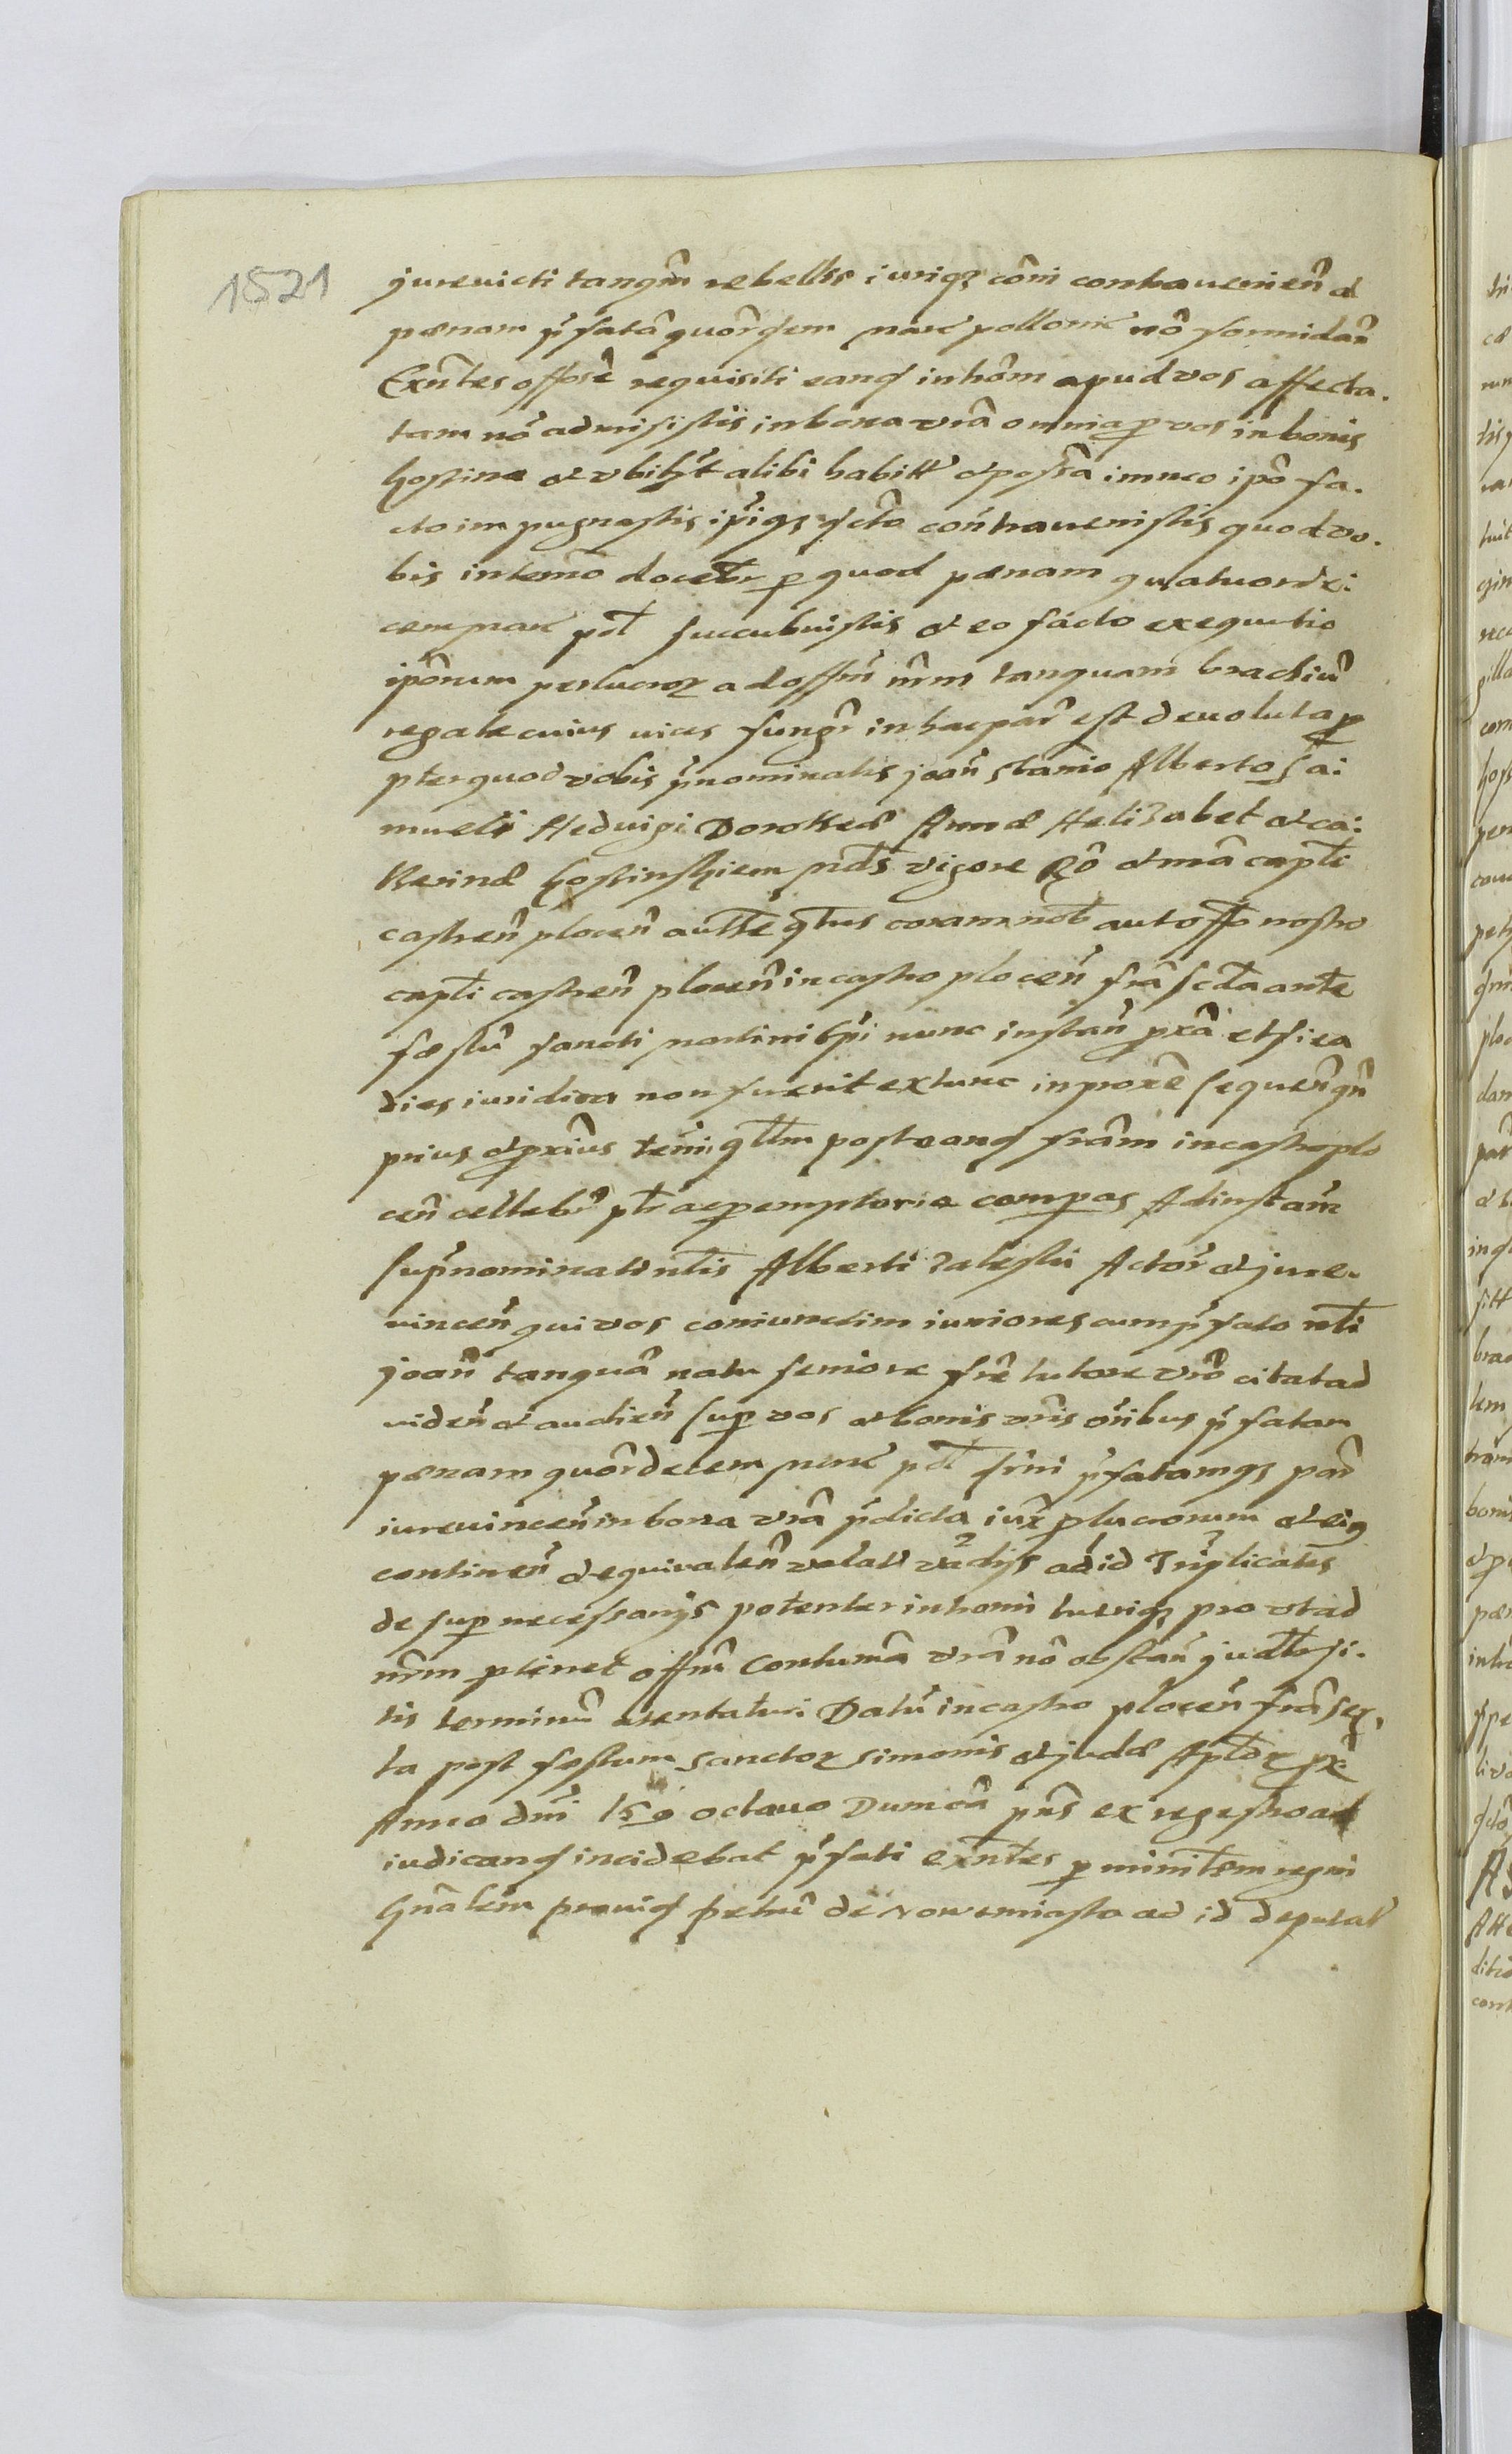 1521
jurevicti tanqm̃ rebelles iurique cõi contravenieñ et
pœnam p̃fatã quõrdem marc pollonic nõ formidañ
Exñtes offosẽ requisiti eand inhõm apud vos affecta.
tam nõ admisistis in bona vrã omnia p vos in bonis
hostino et vbilȝt alibi habitt et possã imuro ipõ fa.
cto impugnastis ip̃iqȝ scto coñtravenistis quod vo.
bis in termõ docebr̃ p quod pœnam quatuorde:
cem marc pol succubuistis et eo facto exequutio
ipõrum perlucroȝ ad offm̃ nrm̃ tanquam brachiũ
regale cuius vices fungr̃ in hac par̃ est devoluta p
pter quod vobis p̃nominatis joañ stanio Alberto Sa:
mueli Hedvigi Dorotheæ Annæ Helizabet et ca:
therinæ hostinskiem mds̃ vigore Rõ et mã capti
castreñ ploceñ autte qtus coram nob aut offo nostro
capti castreñ ploceñ in castro ploceñ frã scda ante
fæstũ sancti martini ep̃i nunc instañ pxã et si ea
dies iuridica non fuerit extunc in proxẽ sequeñ qñ
prius et pxĩus termi qttm post eand frãm in castro plo
ceñ cellebr̃ ptr ac pemptorie compas Ad instam̃
supr̃nominati ntis Alberti zaleski Actor̃ et jure.
vinceñ qui vos coniunctim iuniores cum p̃fato nti
joañ tanquã natu seniore frẽ tutore vrõ citat ad
videñ et audieñ sup vos et bonis vrĩs oñibus p̃fatam
pœnam quõrdecem marc pol scñi p̃fatamqȝ par̃
iurevinceñ in bona vrã p̃dicta iux̃ plucrorum et eiȝ
contineñ et equivaleñ valati vadijs ad id Triplicatis
de sup necessarijs potenter intromi tuerique pro vt ad
nrm̃ ptinet offm̃ Contumã vrã nõ obstañ judtr si.
tis terminũ attentaturi Datũ in castro ploceñ frã sex,
ta post fæstum sanctoȝ simonis et judæ Apploȝ px̃
Anno dm̃i 150 octavo Dum cã pñs ex regestro ad
iudicand incidebat p̃fati exñtes p minitrem regni
gñalem provid petrũ de nowemiasto ad id deputat